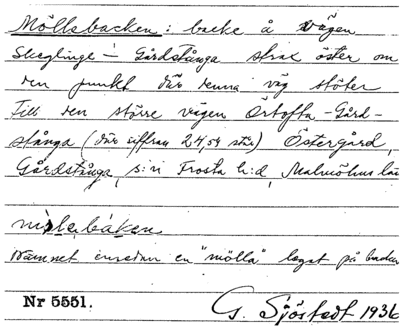 Möllebacken: backe å vägen
Skeglinge - Gårdstånga strax öster om
den punkt där denna väg stöter
till den större vägen Örtofta - Gård-
stånga (där siffran 24,54 står) Östergård,
Gårdstånga s:n Frosta h:d, Malmöhus län
mølebàken
Namnet emedan en "mölla" legat på backen
Nr 5551.
G. Sjöstedt 1936